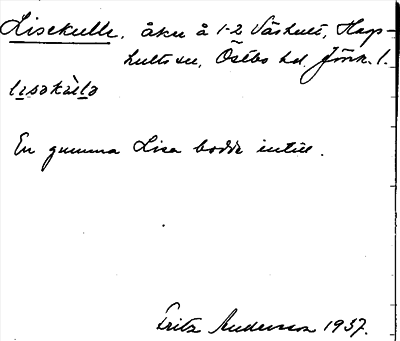 Lisekulle, åker å 1-2 Våshult, Hag-
hults sn, Östbo hd, Jönk. l.
lisəkùlə
En gumma Lisa bodde intill.
Fritz Andersson 1937.